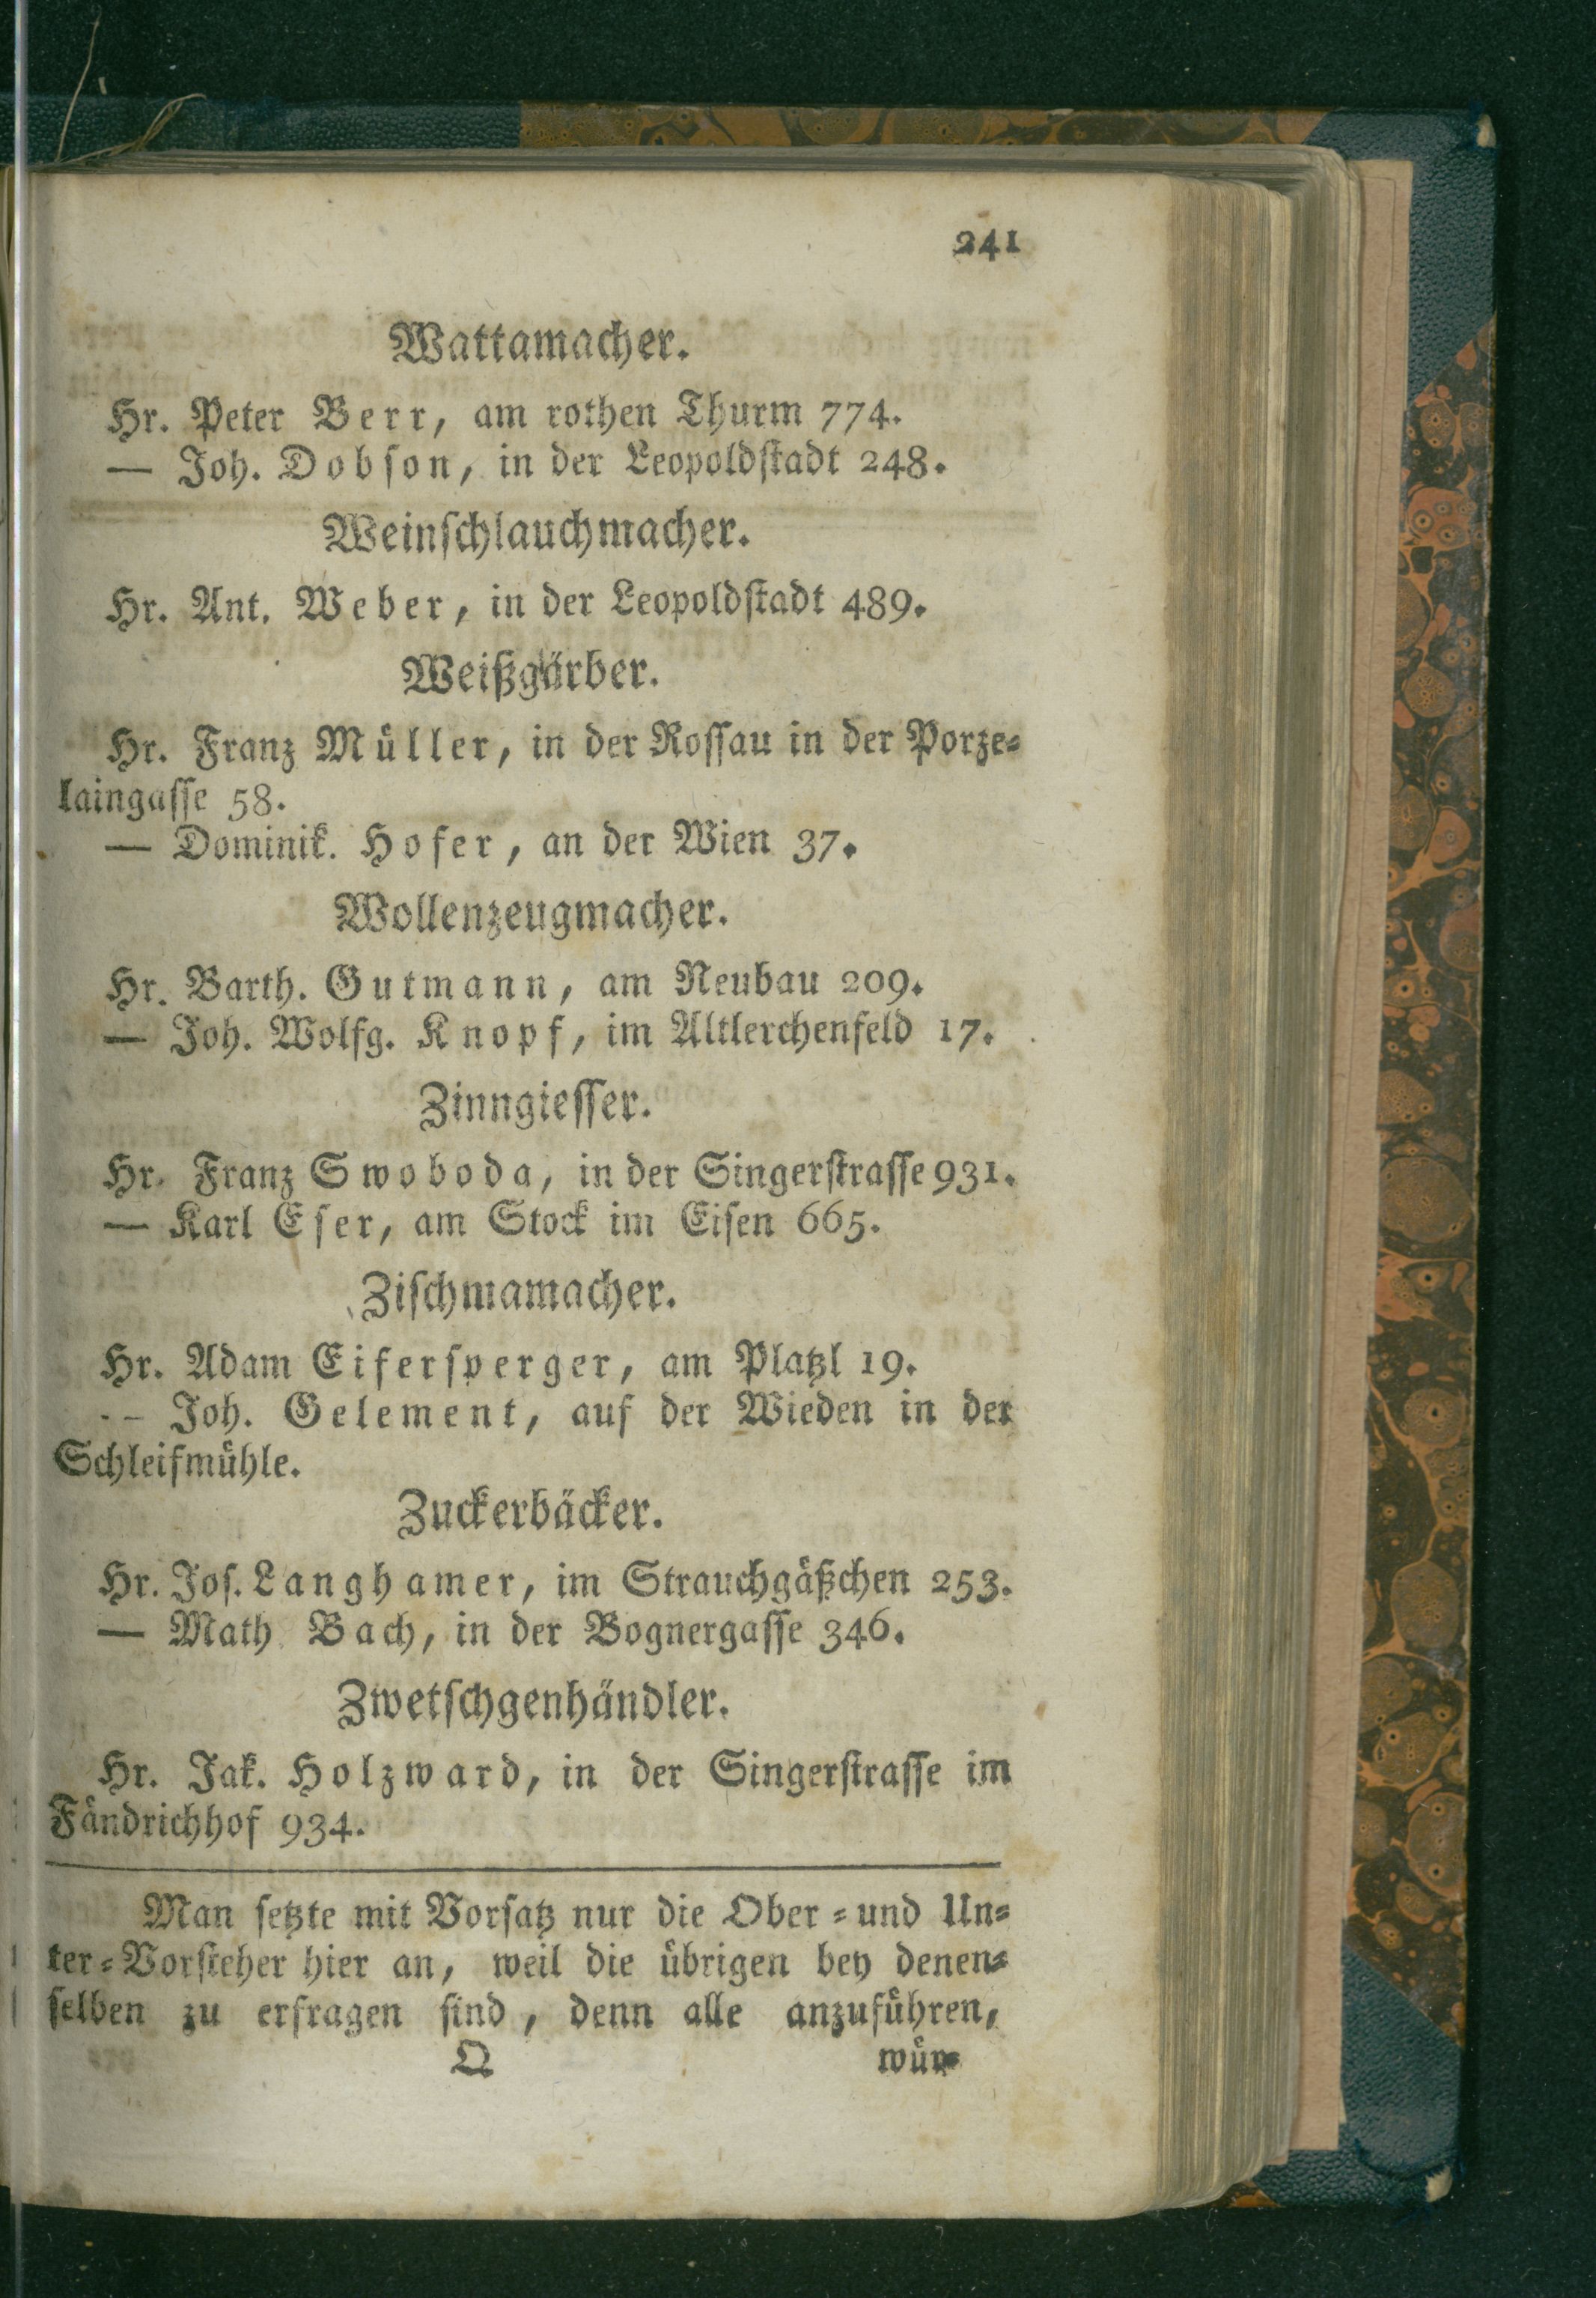 241
Wattamacher.
Hr. Peter Berr, am rothen Thurm 774.
— Joh. Dobson, in der Leopoldstadt 248.
Weinschlauchmacher.
Hr. Ant. Weber, in der Leopoldstadt 489.
Weißgärber.
Hr. Franz Müller, in der Rossau in der Porze-
laingasse 58.
— Dominik. Hofer, an der Wien 37.
Wollenzeugmacher.
Hr. Barth. Gutmann, am Neubau 209.
— Joh. Wolfg. Knopf, im Altlerchenfeld 17.
Zinngiesser.
Hr. Franz Swoboda, in der Singerstrasse 931.
— Karl Eser, am Stock im Eisen 665.
Zischmamacher.
Hr. Adam Eifersperger, am Platzl 19.
— Joh. Gelement, auf der Wieden in der
Schleifmühle.
Zuckerbäcker.
Hr. Jos. Langhamer, im Strauchgäßchen 253.
— Math. Bach, in der Bognergasse 346.
Zwetschgenhändler.
Hr. Jak. Holzward, in der Singerstrasse im
Fändrichhof 934.
Man setzte mit Vorsatz nur die Ober- und Un-
ter-Vorsteher hier an, weil die übrigen bey denen-
selben zu erfragen sind, denn alle anzuführen,
Q wür-